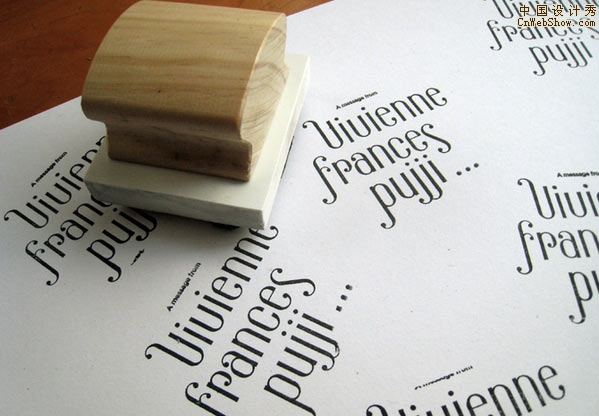 中国设计秀
CnWebShow.com
Vivienne
frances
pujji
A message from
Vivienne
frances
pujji ...
A message from
Vivienne
frances
pujji
A message from
A message from
Vivienne
frances
pujji ...
Vivienne